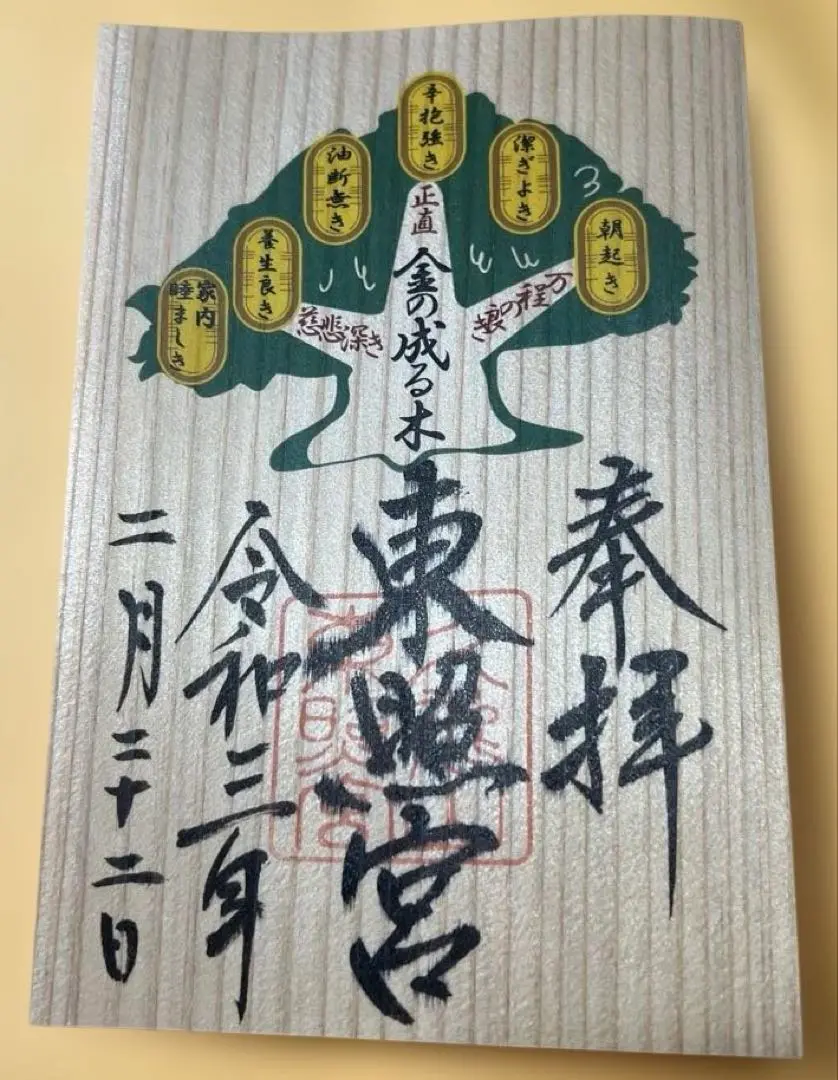 朝起き
潔ぎよき
辛抱強き
油断無き
養生良き
家内
睦ましき
万程の良き
正直
慈悲深き
金の成る木
奉拝
東照宮
令和三年
二月二十二日